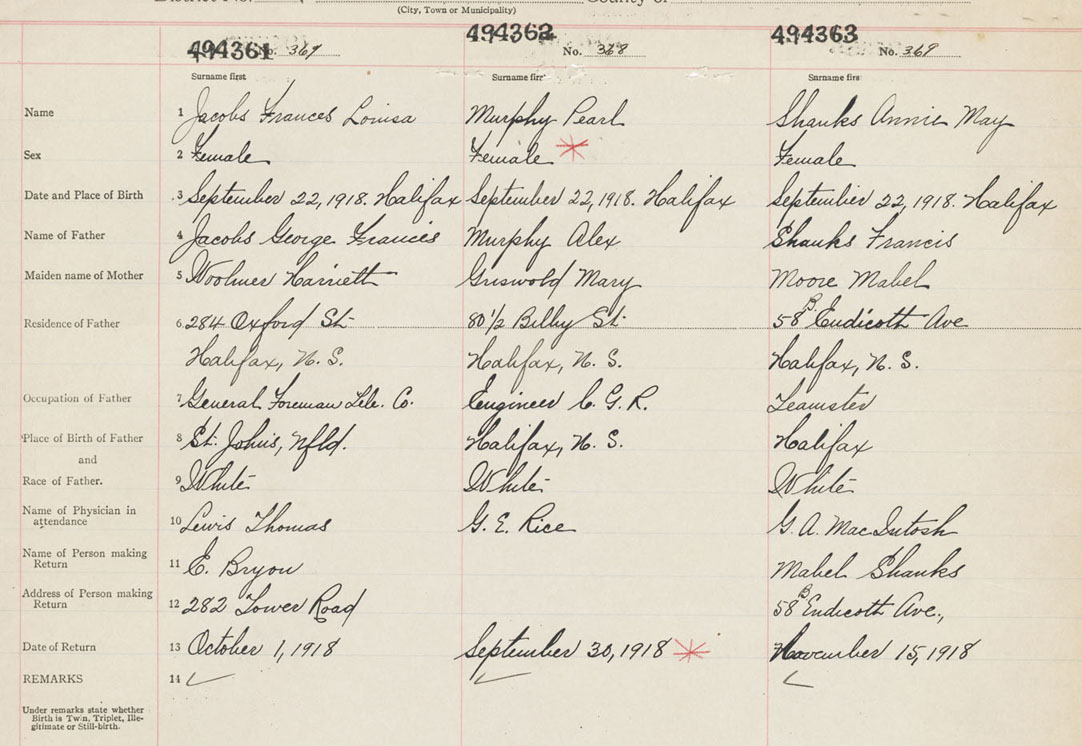 District No. County of
(City, Town or Municipality)
494361 494362 494363
No. 367 No. 368 No. 369
Surname first Surname firs Surname firs
Name 1 Jacobs Frances Louisa Murphy Pearl Shanks Annie May
Sex 2 Female Female Female
Date and Place of Birth 3 September 22, 1918. Halifax September 22, 1918. Halifax September 22, 1918. Halifax
Name of Father 4 Jacobs George Francis Murphy Alex Shanks Francis
Maiden name of Mother 5 Woolmer Harriett Griswold Mary Moore Mabel
Residence of Father 6 284 Oxford St. 80 1/2 Bilby St. 58B Endicott Ave
Halifax, N. S. Halifax, N. S. Halifax, N. S.
Occupation of Father 7 General Foreman Tele. Co. Engineer C. G. R. Teamster
Place of Birth of Father 8 St. Johns, Nfld. Halifax, N. S. Halifax
and
Race of Father. 9 White White White
Name of Physician in
attendance 10 Lewis Thomas G. E. Rice G. A. MacIntosh
Name of Person making
Return 11 E. Bryon Mabel Shanks
Address of Person making
Return 12 282 Tower Road 58B Endicott Ave.,
Date of Return 13 October 1, 1918 September 30, 1918 November 15, 1918
REMARKS 14
Under remarks state whether
Birth is Twin, Triplet, Ille-
gitimate or Still-birth.